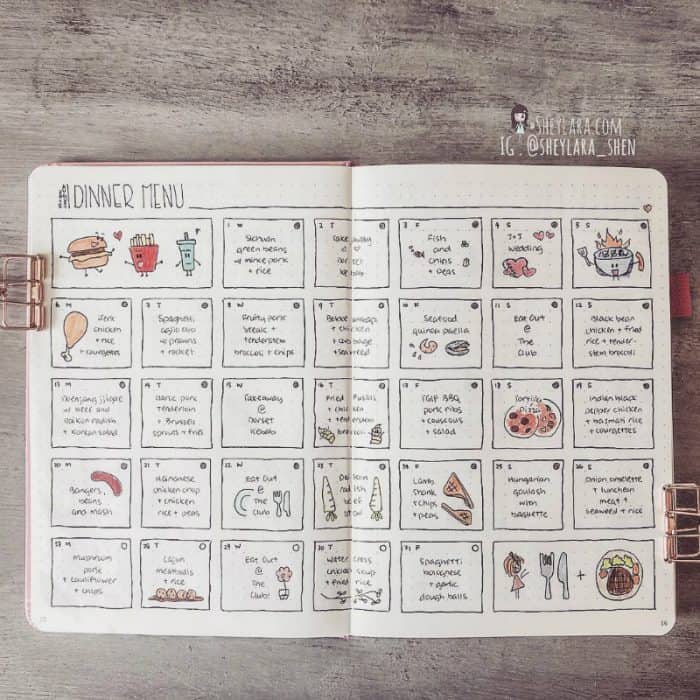 SHEYLARA.COM
IG : @SHEYLARA_SHEN
DINNER MENU
1 W
Sichuan
green beans
w mince pork
+ rice
2 T
Takeaway
@
3 F
Fish
and
chips
+ peas
4 S
J+J
wedding
5 S
6 M
Jerk
chicken
+ rice
+ courgettes
7 T
Spaghetti
aglio olio
w prawns
+ rocket
8 W
Fruity pork
+ tenderstem
broccoli + chips
9 T
+ chicken
+ cabbage
+ seaweed
10 F
Seafood
quinoa paella
11 S
Eat Out
@
The
Club
12 S
Black bean
chicken + fried
rice + tender-
stem broccoli
13 M
Doenjang jjigae
w beef and
daikon radish
+ Korean salad
14 T
Garlic pork
tenderloin
+ Brussels
sprouts + fries
15 W
Takeaway
@
Dorset
Kebabs
16 T
Fried Fusilli
+ chicken
+ tenderstem
broccoli
17 F
TGIF BBQ
pork ribs
+ couscous
+ salad
18 S
Tortilla
Pizza
19 S
Indian black
pepper chicken
+ basmati rice
+ courgettes
20 M
Bangers,
beans
and mash
21 T
Hainanese
chicken chop
+ chicken
rice + peas
22 W
Eat Out
@
The
Club
23 T
Daikon
radish
beef
stew
24 F
Lamb
shank
+ chips
+ peas
25 S
Hungarian
goulash
with
baguette
26 S
Onion omelette
+ luncheon
meat +
seaweed + rice
27 M
Mushroom
pork
+ cauliflower
+ chips
28 T
Cajun
meatballs
+ rice
29 W
Eat Out
@
The
Club!
30 T
Watercress
chicken soup
+ fried rice
31 F
Spaghetti
bolognese
+ garlic
dough balls
+